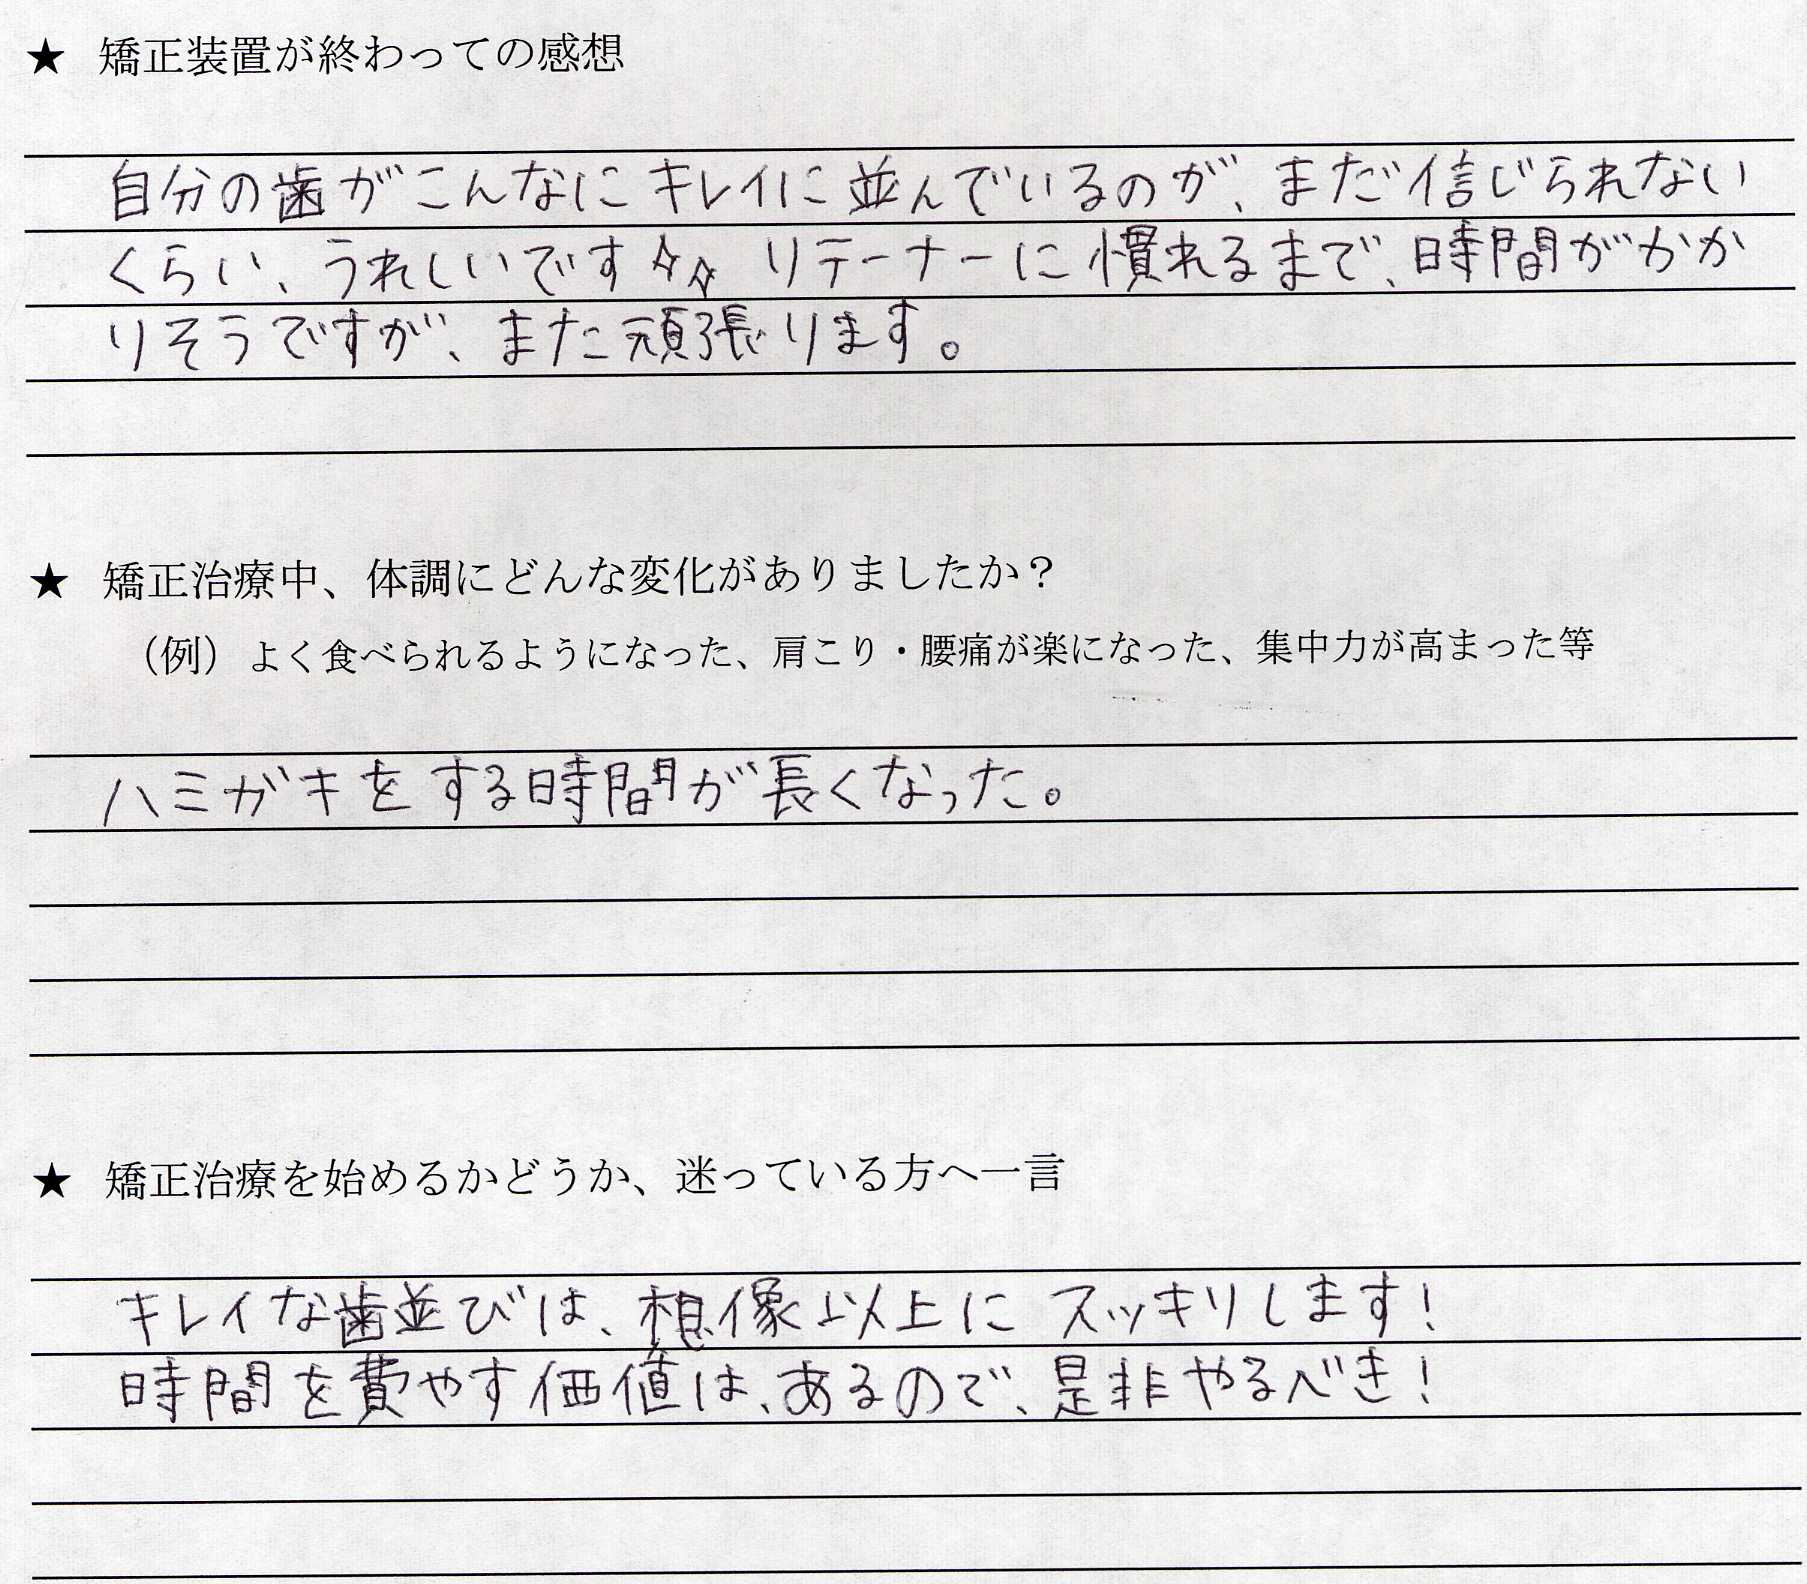 ★ 矯正装置が終わっての感想
自分の歯がこんなにキレイに並んでいるのが、まだ信じられない
くらい、うれしいです☆☆ リテーナーに慣れるまで、時間がかか
りそうですが、また頑張ります。
★ 矯正治療中、体調にどんな変化がありましたか？
（例）よく食べられるようになった、肩こり・腰痛が楽になった、集中力が高まった等
ハミガキをする時間が長くなった。
★ 矯正治療を始めるかどうか、迷っている方へ一言
キレイな歯並びは、想像以上にスッキリします！
時間を費やす価値は、あるので、是非やるべき！